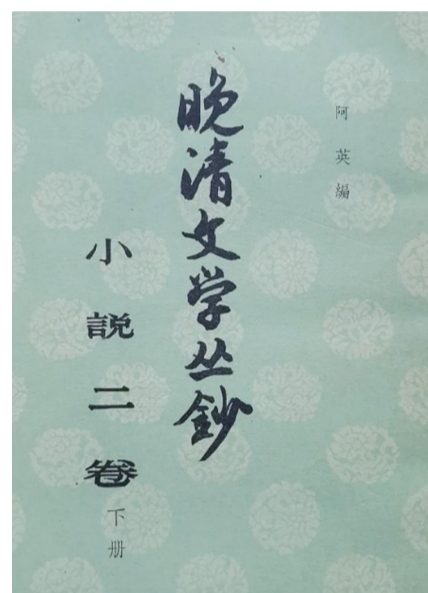 阿英編
晚清文学丛鈔
小説二卷
下册